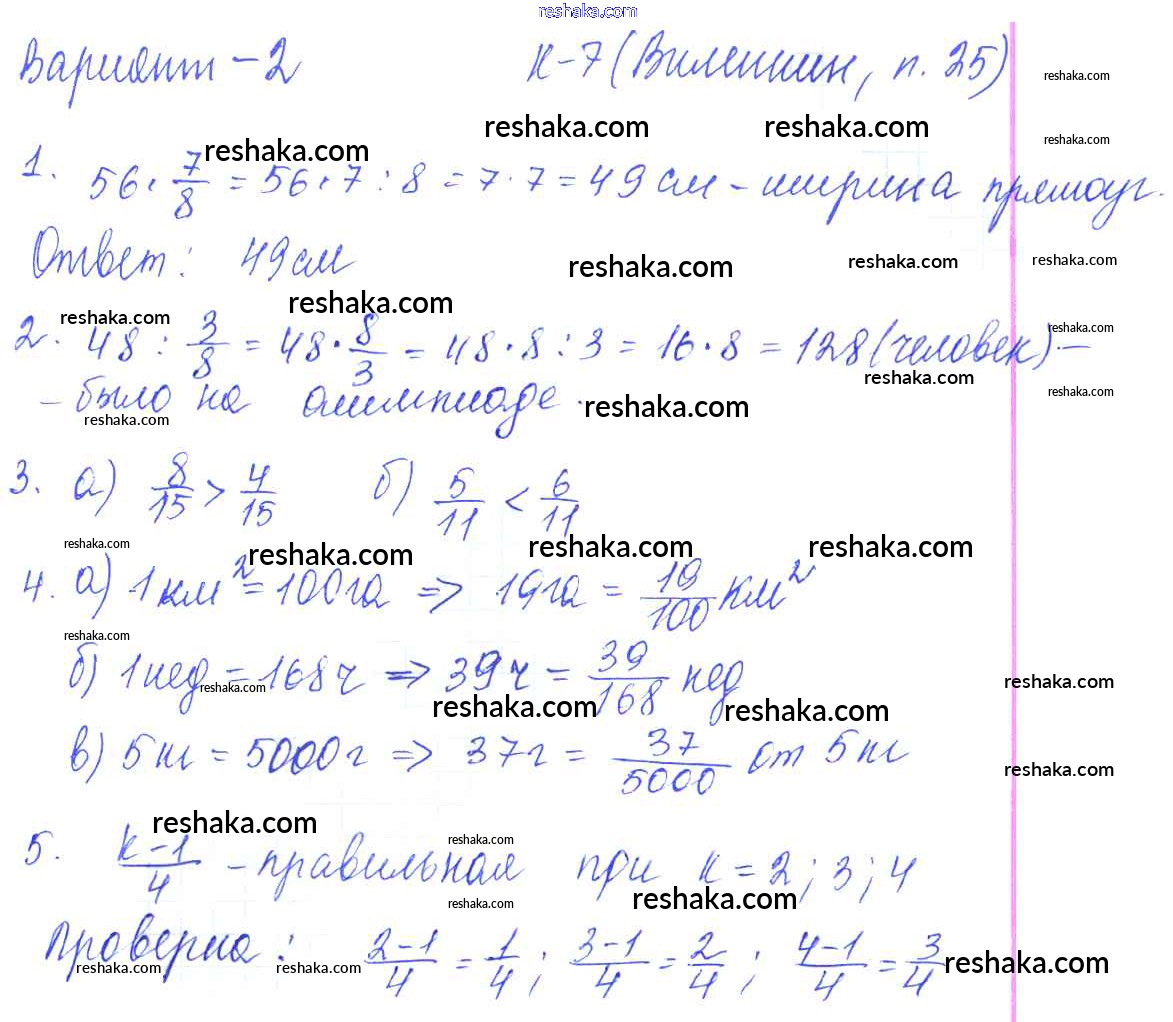 reshaka.com
Вариант - 2 К-7 (Виленкин, п. 25)
reshaka.com
reshaka.com reshaka.com
reshaka.com
reshaka.com
1. 56 · 7/8 = 56 · 7 : 8 = 7 · 7 = 49 см - ширина прямоуг.
Ответ: 49 см
reshaka.com reshaka.com reshaka.com
reshaka.com
reshaka.com reshaka.com
2. 48 : 3/8 = 48 · 8/3 = 48 · 8 : 3 = 16 · 8 = 128 (человек) -
reshaka.com reshaka.com
- было на олимпиаде.
reshaka.com reshaka.com
3. а) 8/15 > 4/15 б) 5/11 < 6/11
reshaka.com reshaka.com reshaka.com reshaka.com
4. а) 1 км² = 100 га => 19 га = 19/100 км²
reshaka.com
б) 1 нед = 168 ч => 39 ч = 39/168 нед
reshaka.com reshaka.com
reshaka.com reshaka.com
в) 5 кг = 5000 г => 37 г = 37/5000 от 5 кг
reshaka.com
reshaka.com reshaka.com
5. k-1/4 - правильная при k = 2; 3; 4
reshaka.com reshaka.com
Проверка: 2-1/4 = 1/4; 3-1/4 = 2/4; 4-1/4 = 3/4
reshaka.com reshaka.com reshaka.com